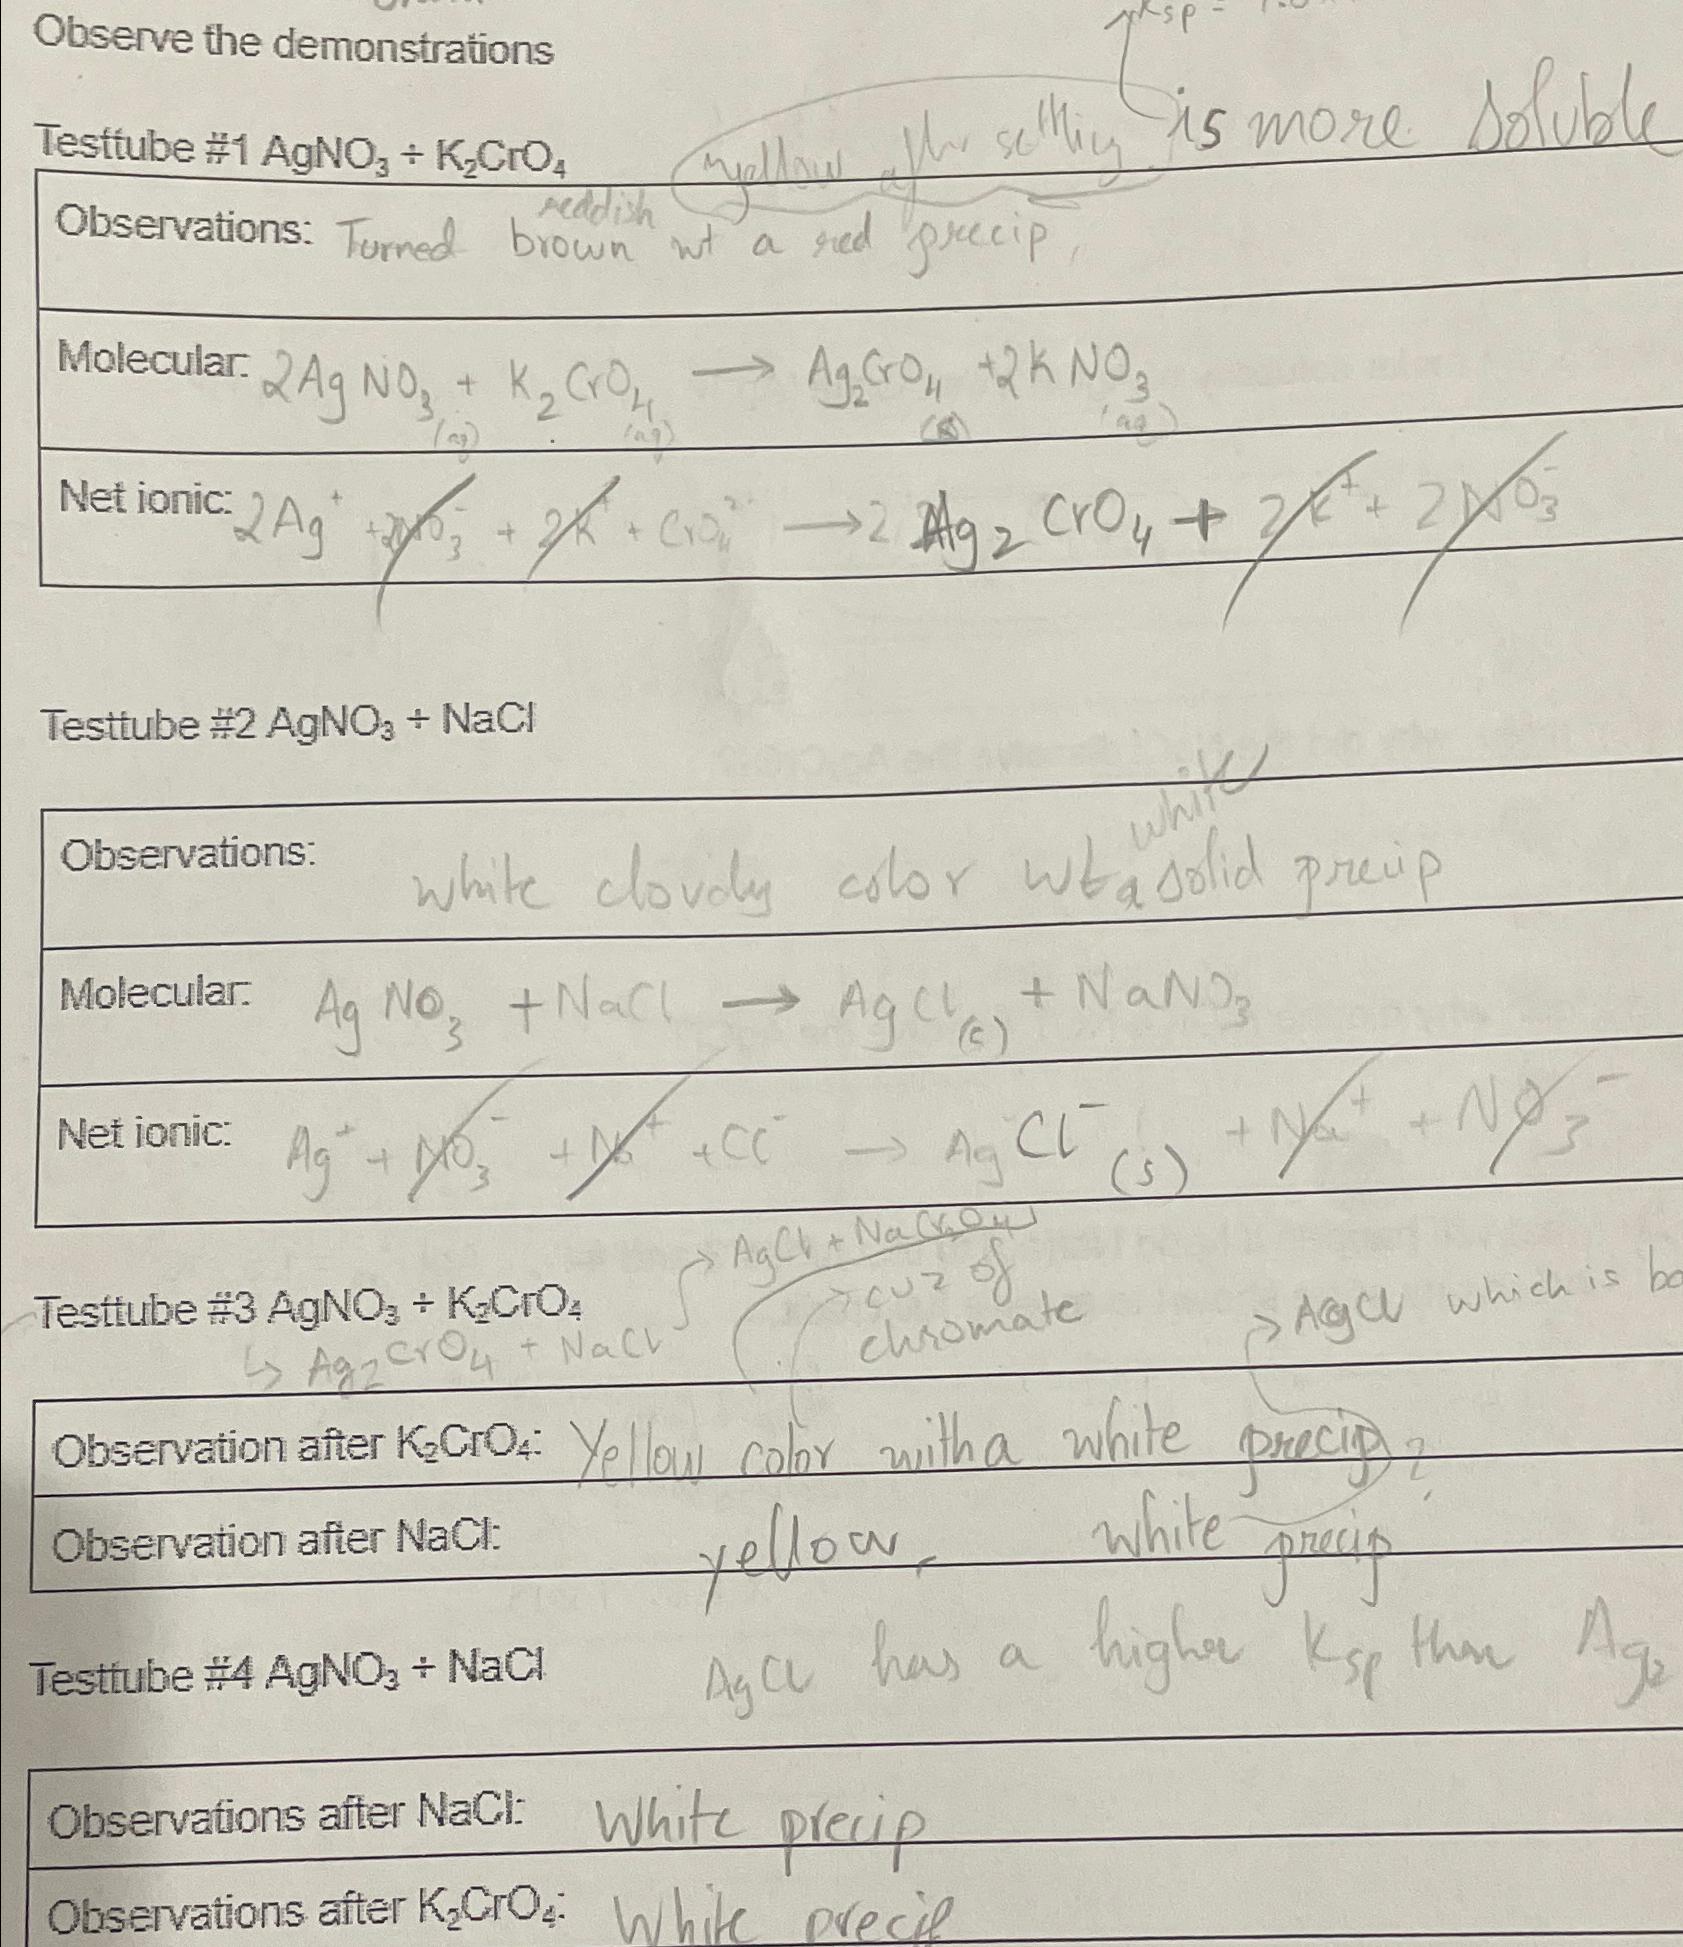 Ksp =
Observe the demonstrations
is more soluble
yellow after settling
Testtube #1 AgNO₃ + K₂CrO₄
reddish
Observations: Turned brown wt a red precip,
Molecular: 2AgNO₃(aq) + K₂CrO₄(aq) → Ag₂CrO₄(s) + 2KNO₃(aq)
Net ionic: 2Ag⁺ + 2NO₃⁻ + 2K⁺ + CrO₄²⁻ → 2 Ag₂CrO₄ + 2K⁺ + 2NO₃⁻
Testtube #2 AgNO₃ + NaCl
white
Observations: white cloudy color wt a solid precip
Molecular: AgNO₃ + NaCl → AgCl(s) + NaNO₃
Net ionic: Ag⁺ + NO₃⁻ + Na⁺ + Cl⁻ → AgCl⁻(s) + Na⁺ + NO₃⁻
→ AgCl + NaCrO₄
Testtube #3 AgNO₃ + K₂CrO₄
→ cuz of
chromate
→ AgCl which is
↳ Ag₂CrO₄ + NaCl
Observation after K₂CrO₄: Yellow color with a white precip?
Observation after NaCl: yellow, white precip
Testtube #4 AgNO₃ + NaCl AgCl has a higher Ksp than Ag₂
Observations after NaCl: White precip
Observations after K₂CrO₄: White precip